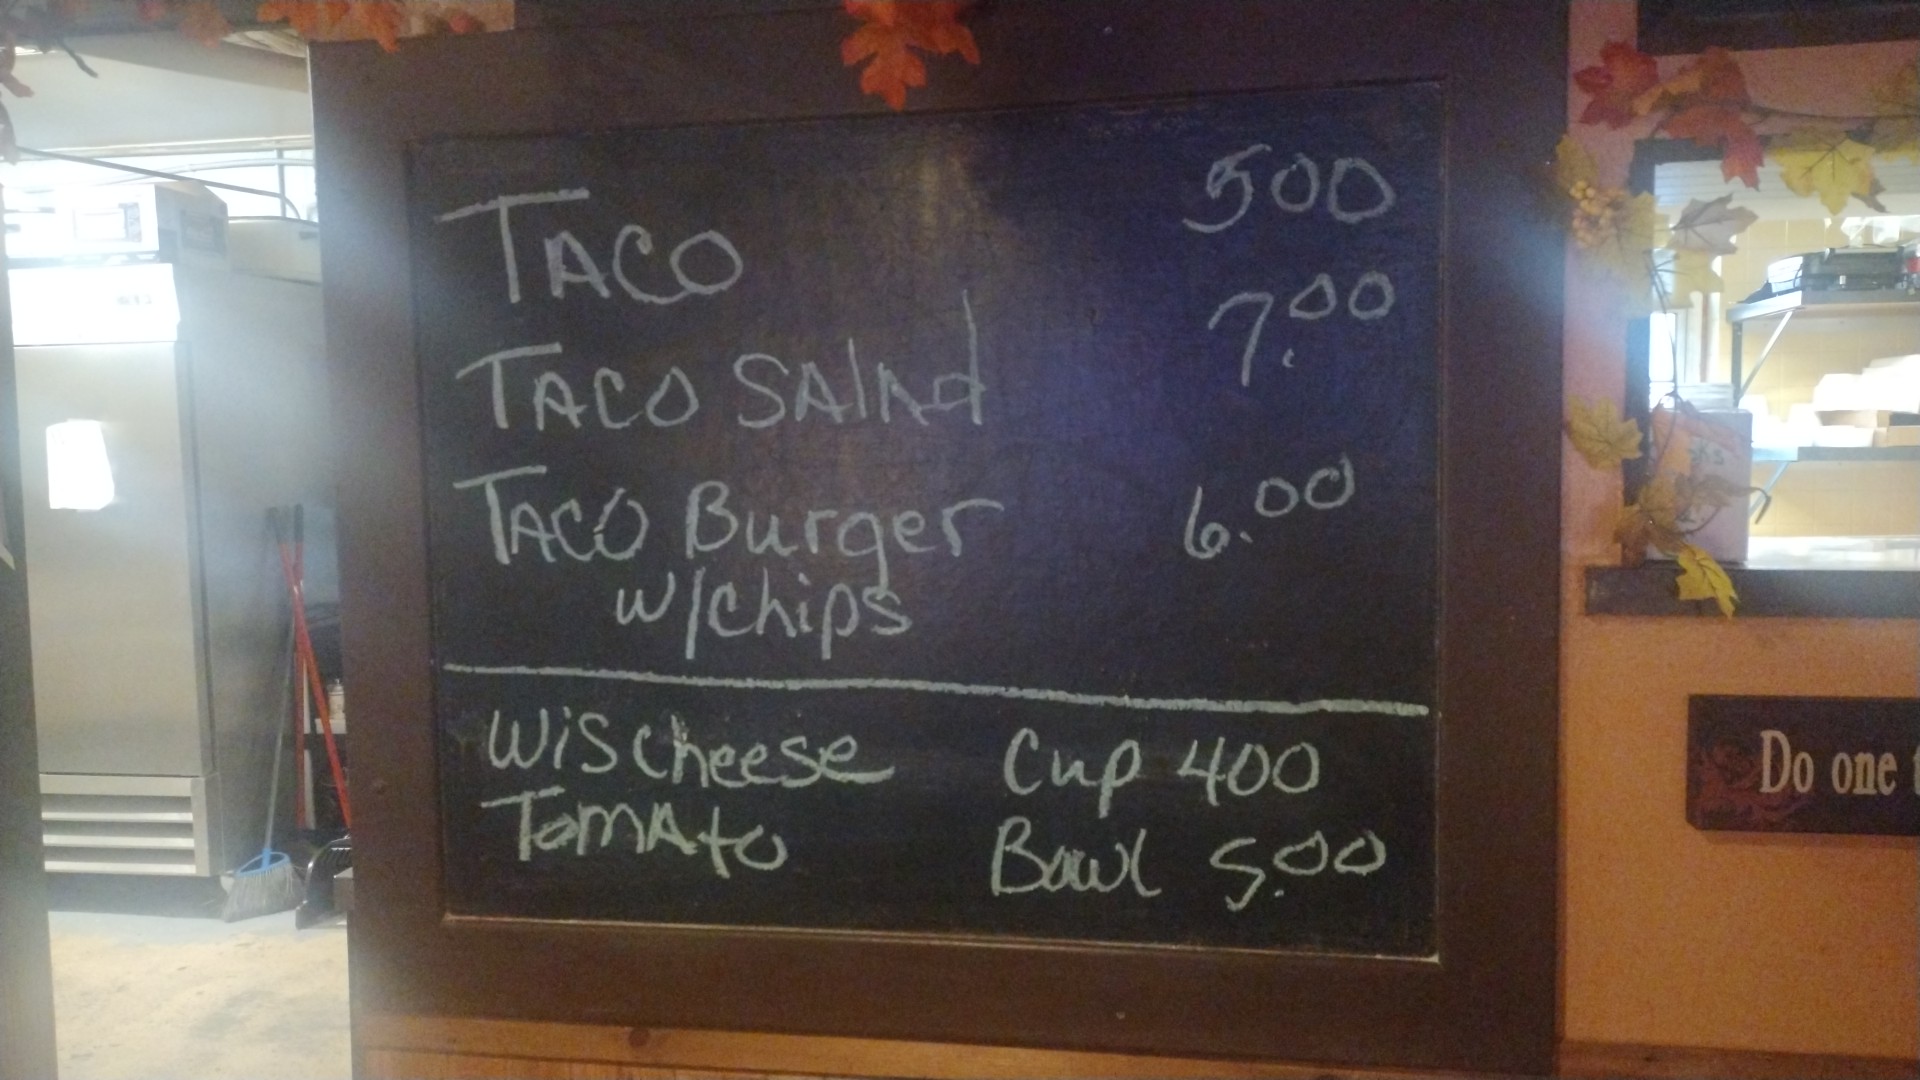 TACO 500
TACO SALAd 7.00
TACO Burger 6.00
w/chips
Wis Cheese Cup 400
TomAto Bowl 5.00
Do one